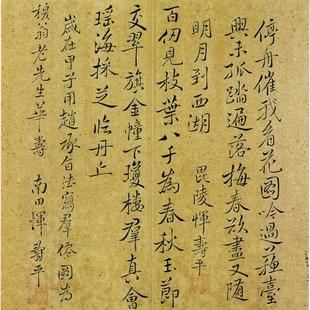 停舟催我看花圖吟過蘇臺
興未孤踏遍落梅春欲盡又隨
明月到西湖
毘陵惲壽平
百仞見枝葉八千為春秋玉節
交翠旗金幢下瓊樓羣真會
瑤海採芝臨丹丘
歲在甲子用趙承旨法寫羣僊圖為
老先生華壽 南田惲壽平